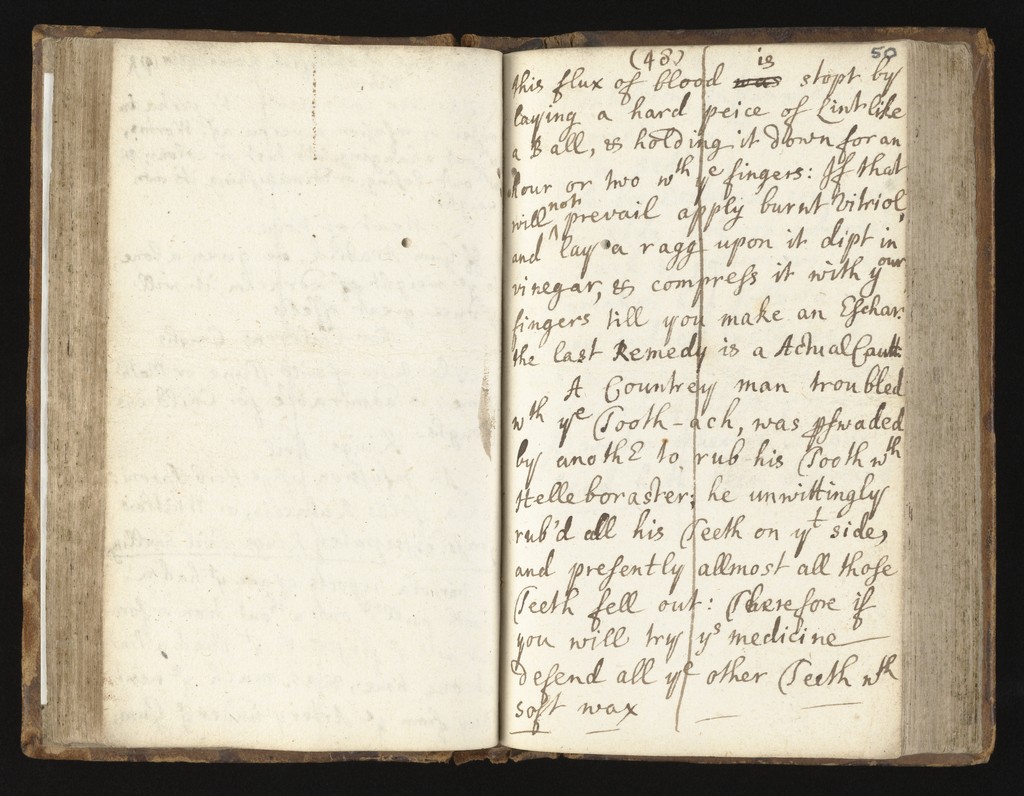 (48) 50
this flux of blood was is stopt by
laying a hard peice of Lint like
a Ball, & holding it down for an
hour or two wth ye fingers: If that
will not prevail apply burnt Vitriol,
and lay a ragg upon it dipt in
vinegar, & compress it with your
fingers till you make an Eschar
the last Remedy is a Actual Caut:
A Countrey man troubled
wth ye Tooth-ach, was pswaded
by anothE to rub his Tooth wth
Helleboraster; he unwittingly
rub'd all his Teeth on yt side,
and presently allmost all those
Teeth fell out: Therefore if
you will try ys medicine
defend all ye other Teeth wth
soft wax